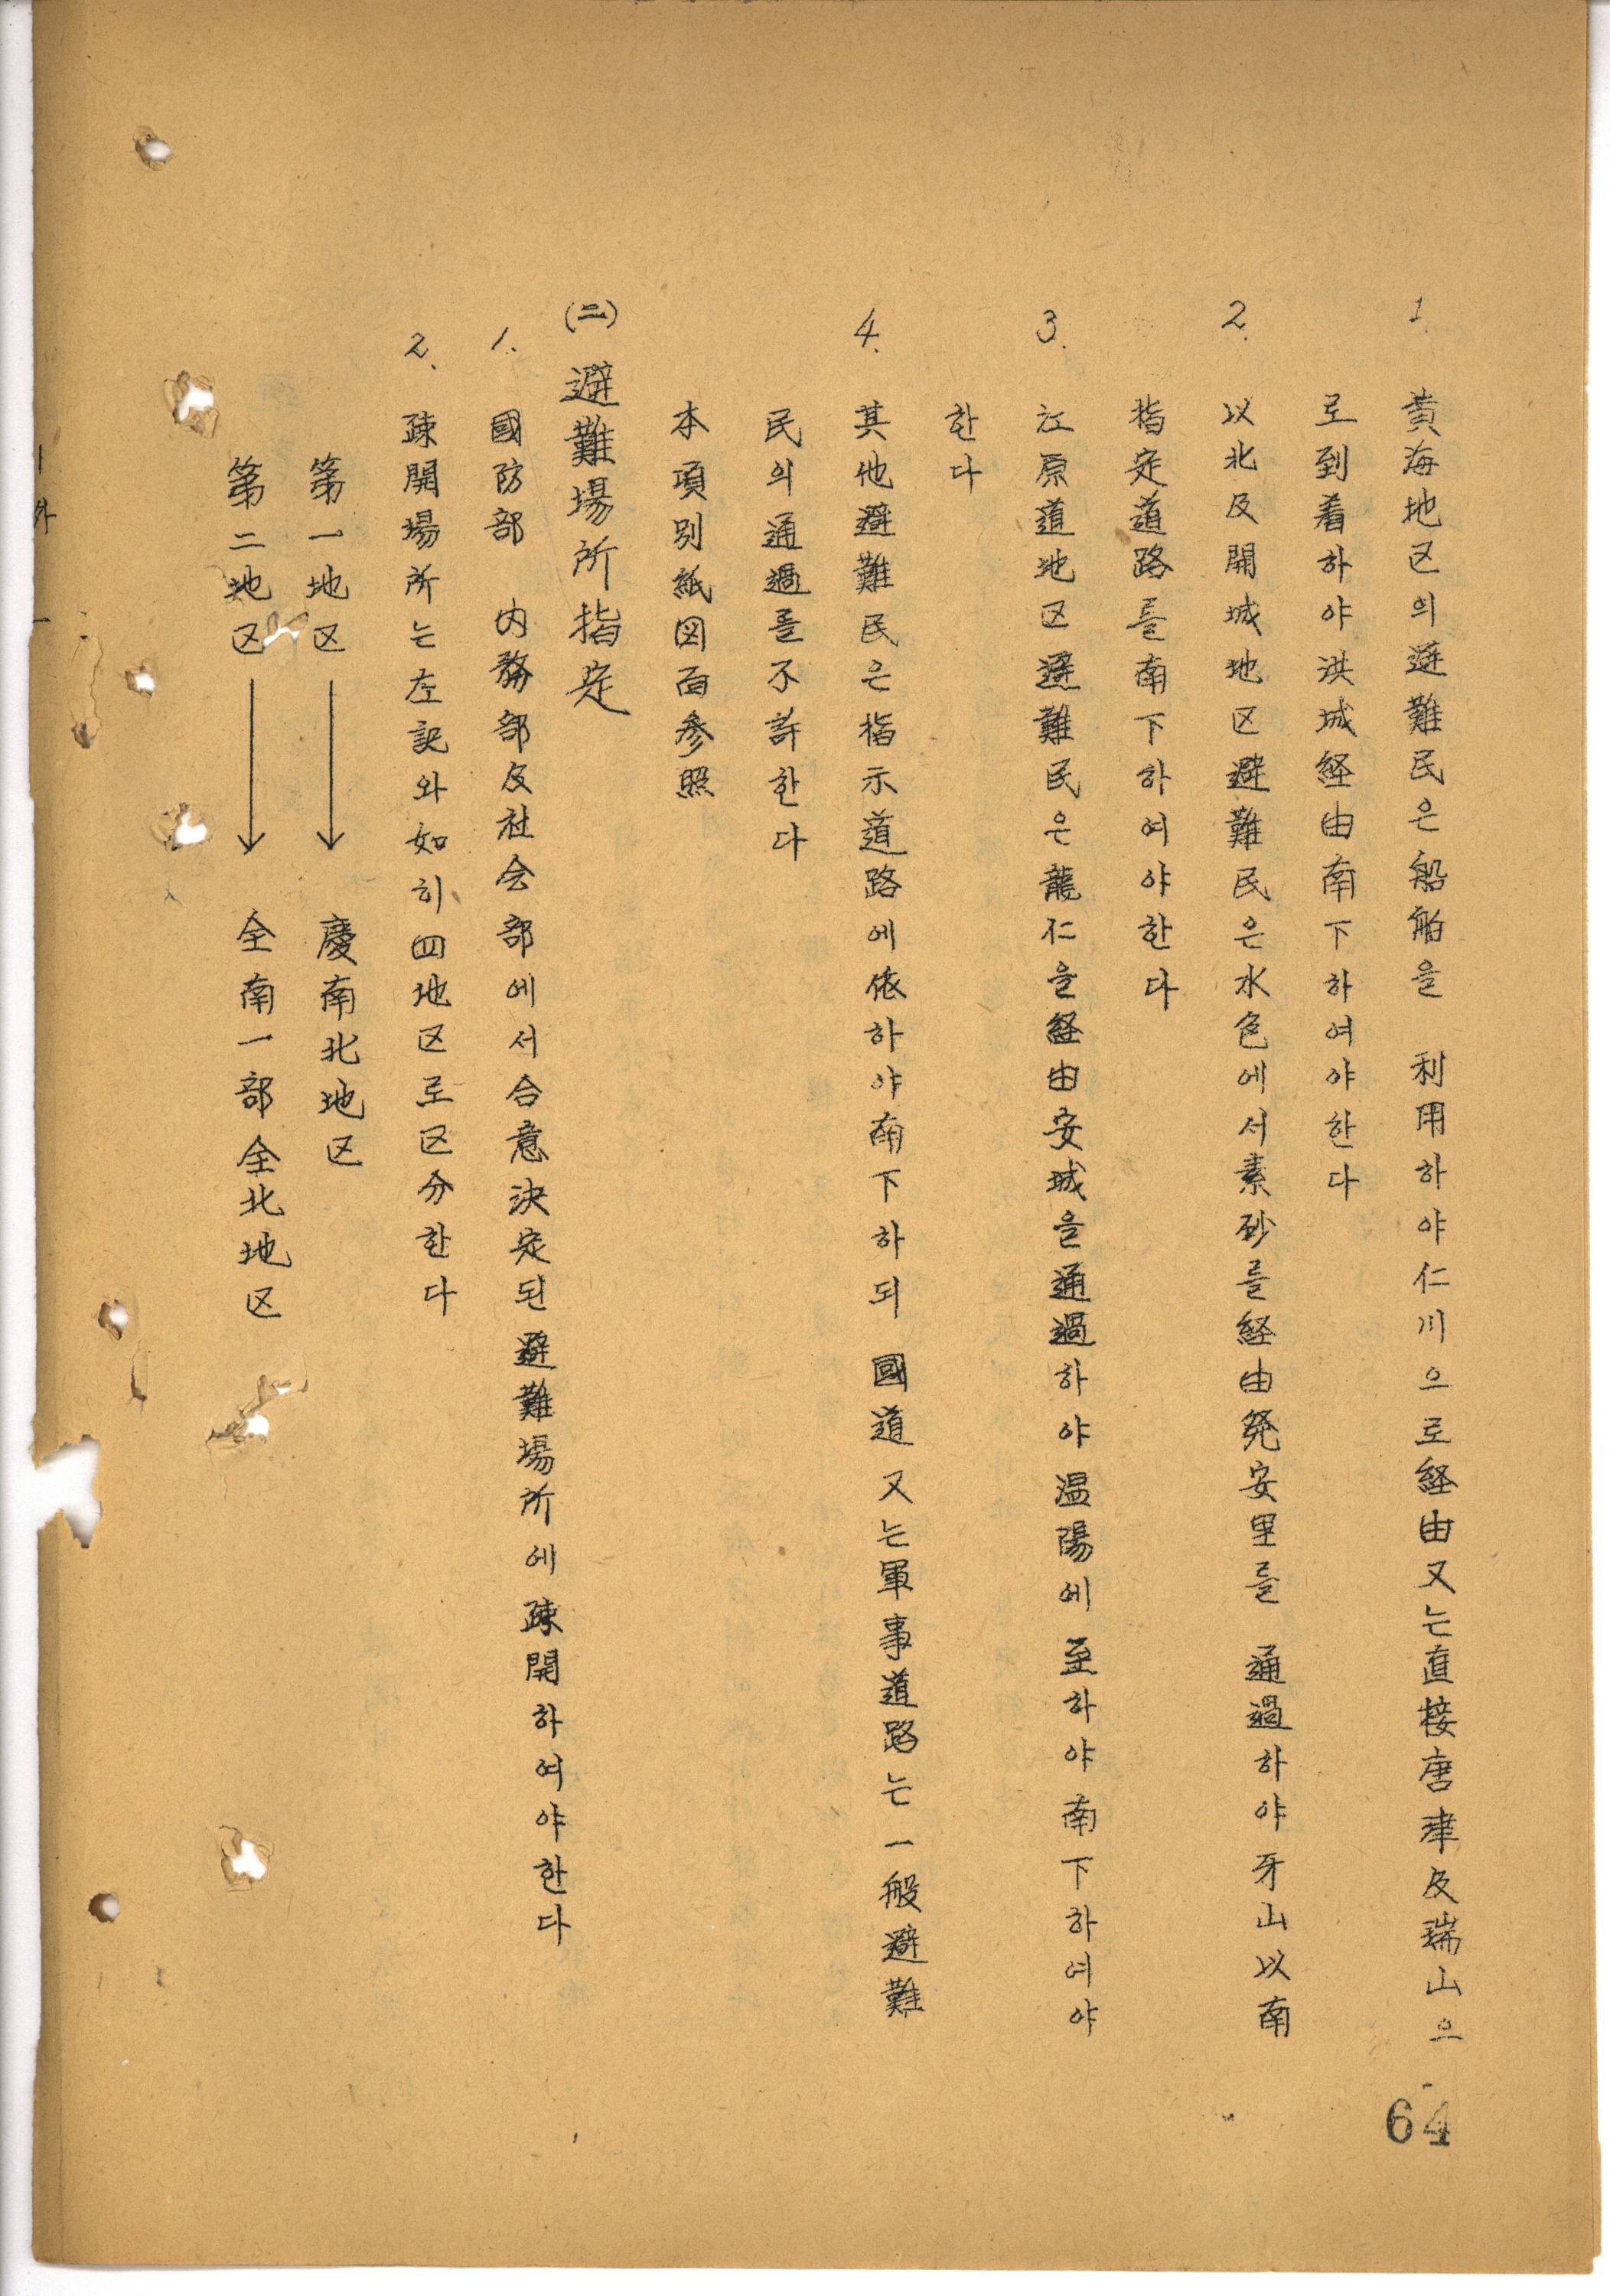 1. 黃海地区의避難民은船舶을 利用하야仁川으로経由又는直接唐津及瑞山으
로到着하야洪城経由南下하여야한다
2. 以北及開城地区避難民은水色에서素砂를経由発安里를 通過하야牙山以南
指定道路를南下하여야한다
3. 江原道地区避難民은龍仁을経由安城을通過하야温陽에至하야南下하여야
한다
4. 其他避難民은指示道路에依하야南下하되 國道又는軍事道路는一般避難
民의通過를不許한다
本項別紙図面参照
(二) 避難場所指定
1. 國防部 内務部及社会部에서合意決定된避難場所에疎開하여야한다
2. 疎開場所는左記와如히四地区로区分한다
第一地区 → 慶南北地区
第二地区 → 全南一部全北地区
64